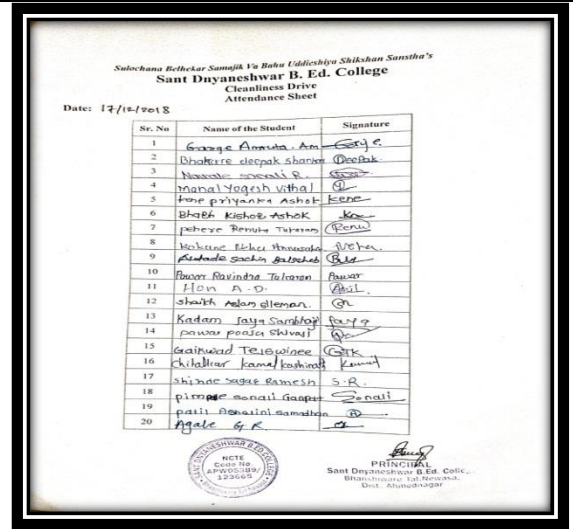 Sulochana Belhekar Samajik Va Bahu Uddieshiya Shikshan Sanstha's
Sant Dnyaneshwar B. Ed. College
Cleanliness Drive
Attendance Sheet
Date: 17/12/2018
Sr. No Name of the Student Signature
1
2 Bhakare deepak Deepak
3
4 manal Yogesh vithal
5 kene priyanka Ashok kene
6 Kishor Ashok
7 Renuka Tukaram Renu
8 Neha
9 sachin
10 Pawar Ravindra Tukaram Pawar
11 Hon A.D.
12 shaikh
13 Kadam Jaya Sambhaji Jaya
14 pawar pooja shivaji
15 Gaikwad Tejswinee
16 chitalkar kamal kashinath
17 shinde sagar Ramesh S.R.
18 pimple sonali Ganpat Sonali
19 patil Ashwini samadhan
20 Agale G R.
SANT DNYANESHWAR B.ED COLLEGE
NCTE
Code No.
APW05389/
123665
PRINCIPAL
Sant Dnyaneshwar B.Ed. Colle,
Bhanshiware Tal.Newasa,
Dist. Ahmednagar